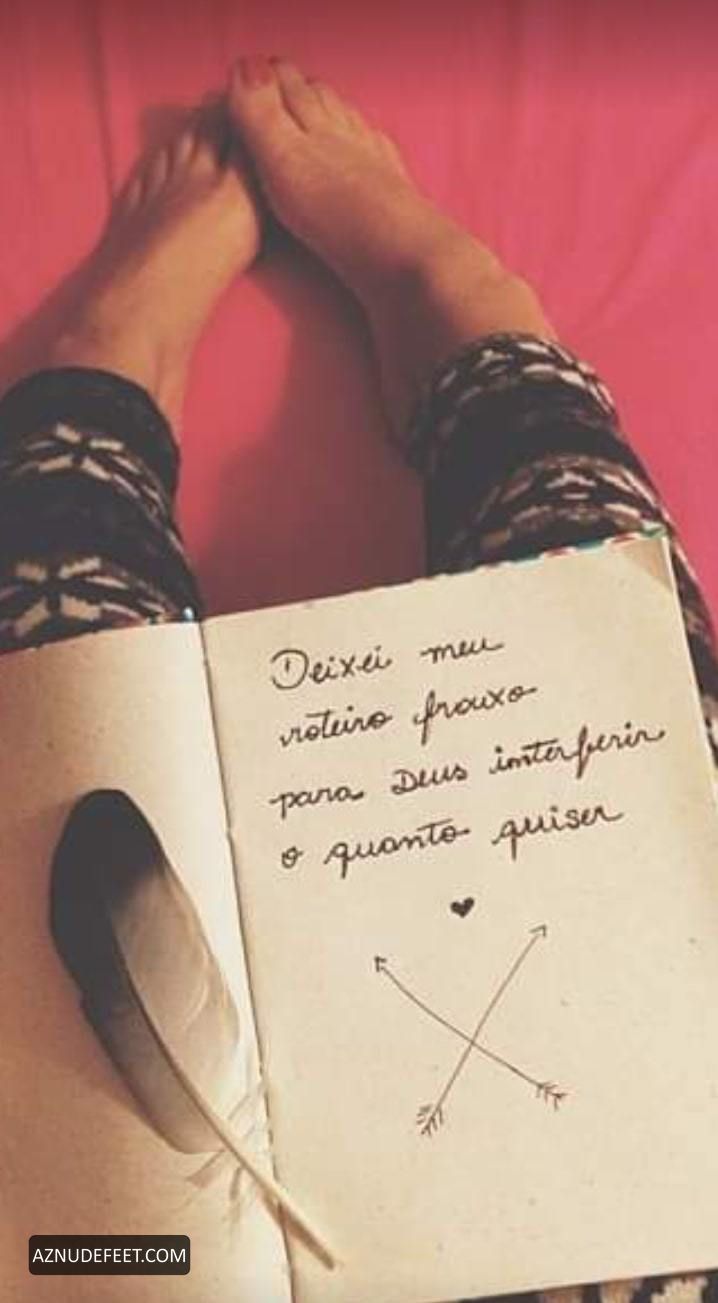 Deixei meu
roteiro frouxo
para Deus interferir
o quanto quiser
AZNUDEFEET.COM